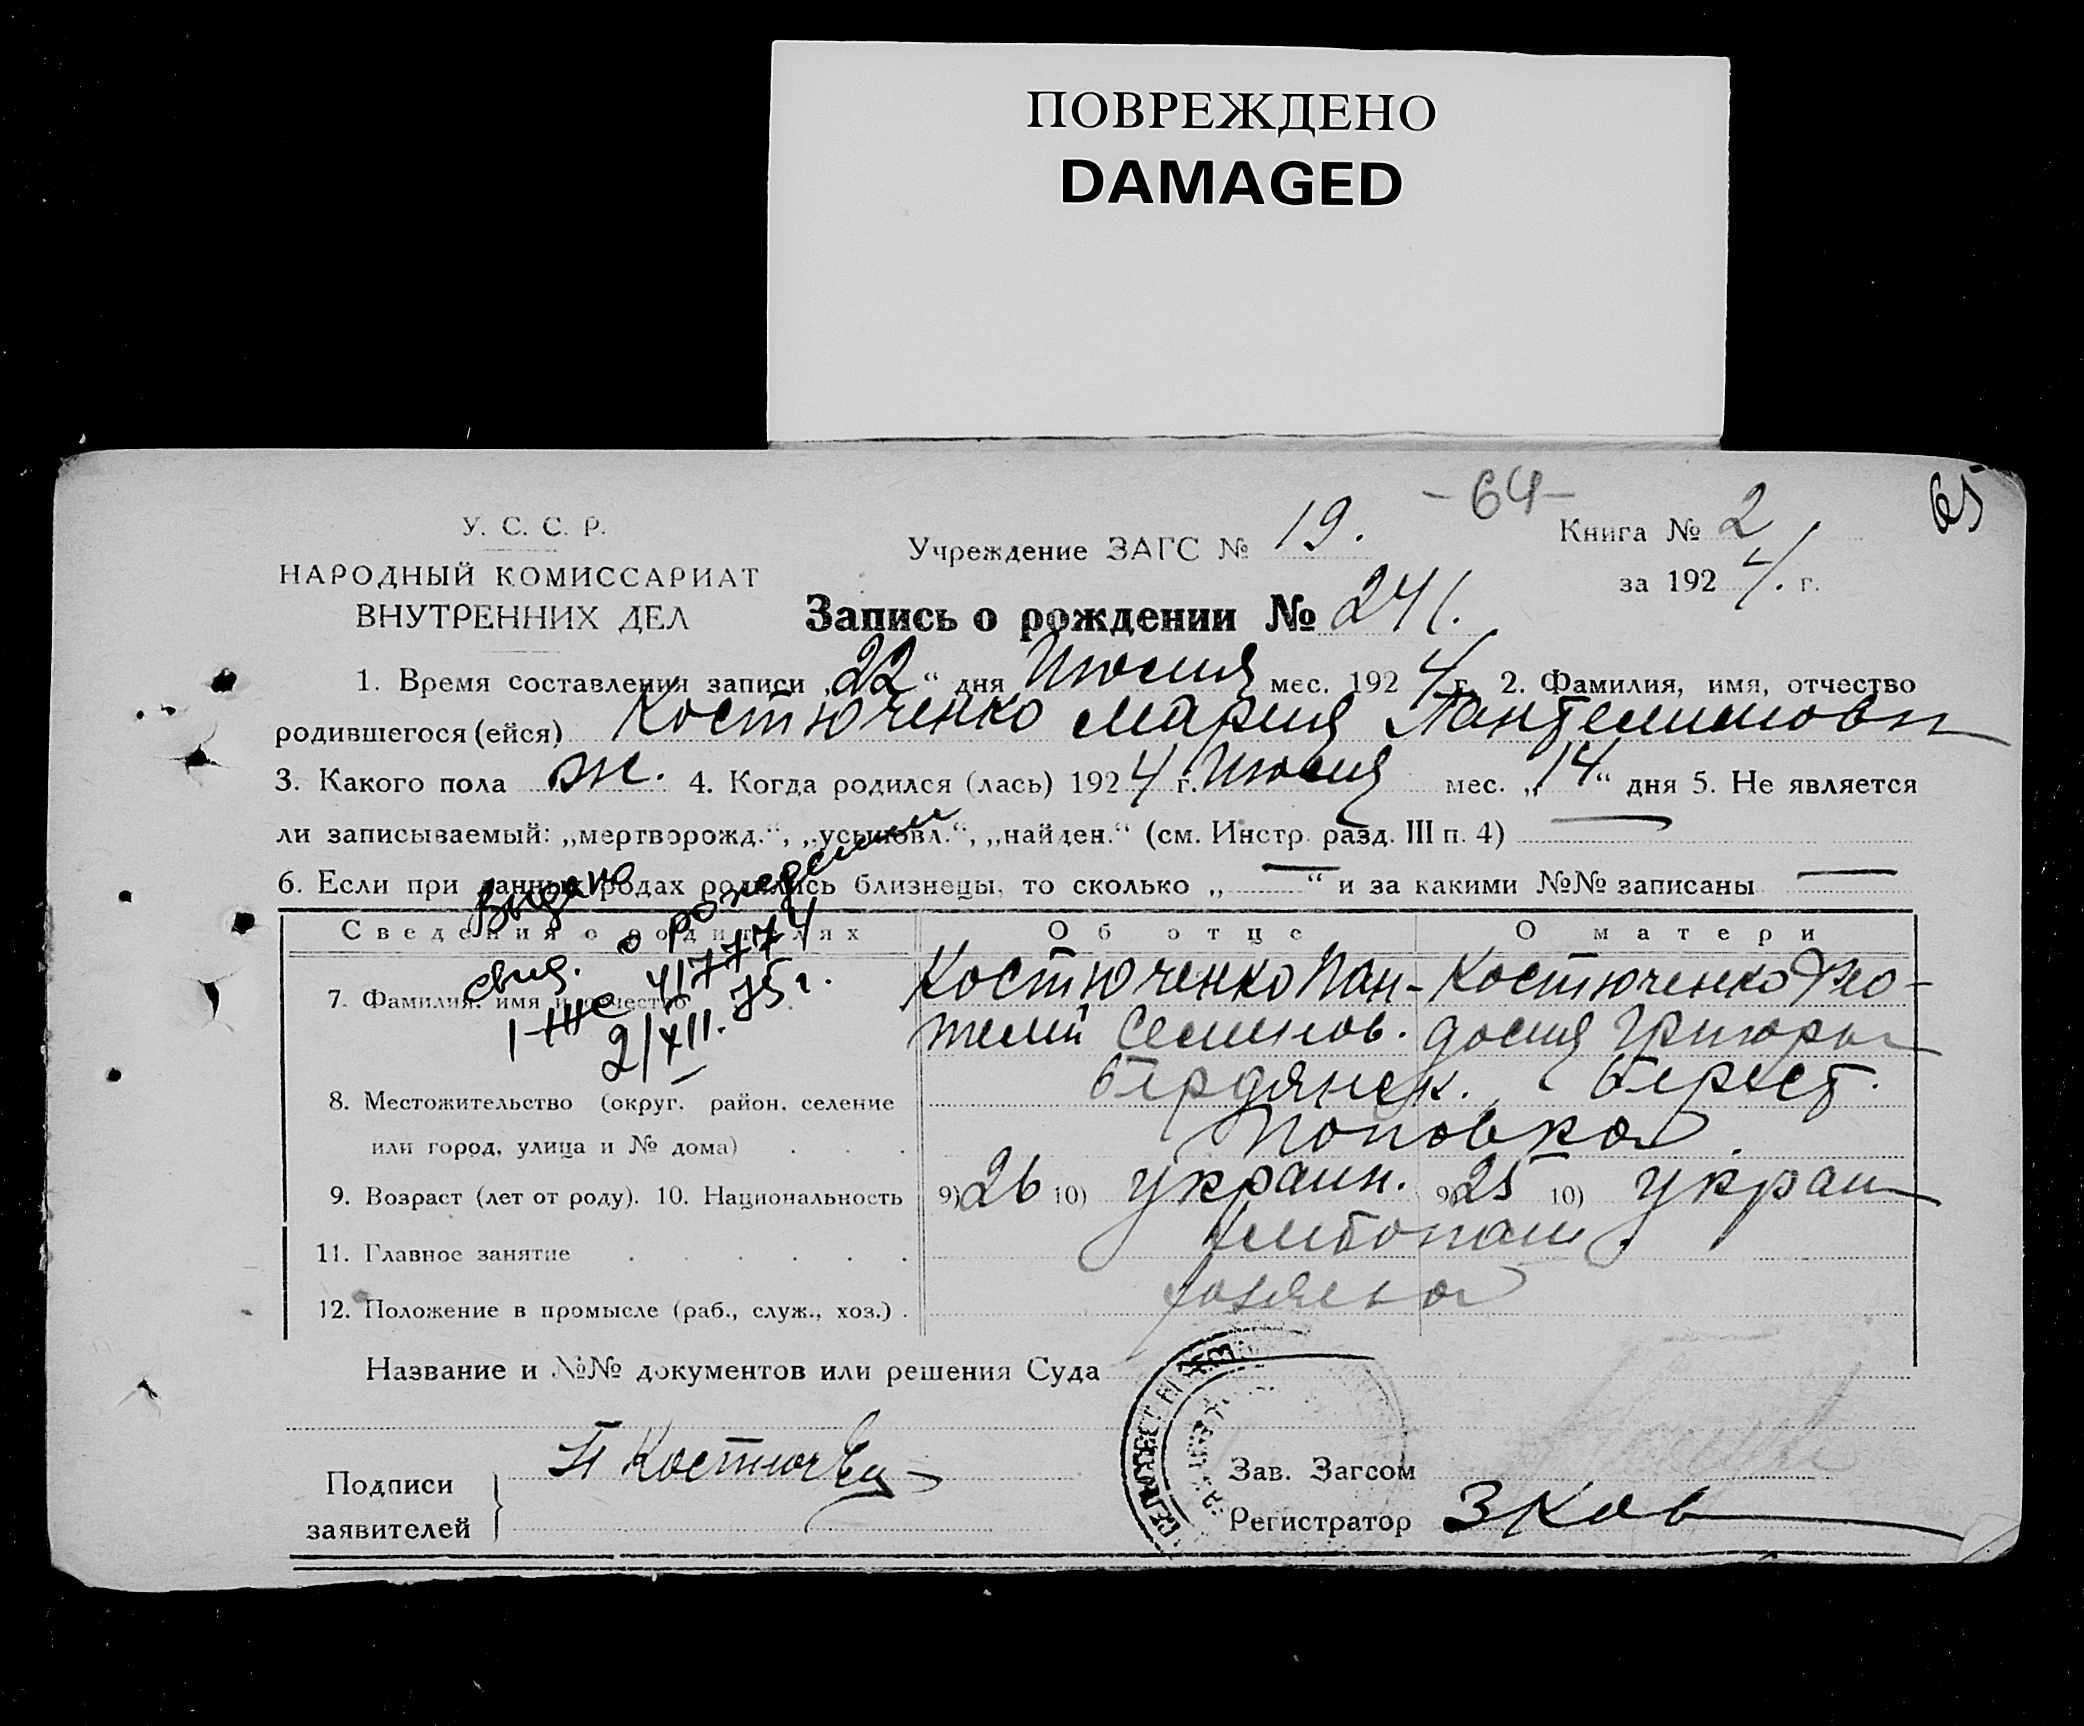 ПОВРЕЖДЕНО
DAMAGED
- 64 -
65
У. С. С. Р.
НАРОДНЫЙ КОМИССАРИАТ
ВНУТРЕННИХ ДЕЛ
Учреждение ЗАГС № 19.
Книга № 2
за 1924. г.
Запись о рождении № 241.
1. Время составления записи „22“ дня Июля мес. 1924 г. 2. Фамилия, имя, отчество
родившегося (ейся) Костюченко Мария Пантелимовн
3. Какого пола ж. 4. Когда родился (лась) 1924 г. Июля мес. „14“ дня 5. Не является
ли записываемый: „мертворожд.“, „усыновл.“, „найден.“ (см. Инстр. разд. III п. 4) —
6. Если при данных родах родились близнецы, то сколько „—“ и за какими №№ записаны —
Выдано
свид. о рождении
417774
2/XII. 75 г.
Сведения о родителях Об отце О матери
7. Фамилия, имя и отчество Костюченко Пан- Костюченко Фео-
телий Семенов. досия Григорьев
8. Местожительство (округ, район, селение Бердянск. Берест.
или город, улица и № дома) . . . Поповка
9. Возраст (лет от роду). 10. Национальность 9) 26 10) украин. 9) 25 10) украин
11. Главное занятие . . . . . . хлебопаш.
12. Положение в промысле (раб., служ., хоз.) . хозяева
Название и №№ документов или решения Суда
Подписи
заявителей
П Костюч
Зав. Загсом
Регистратор